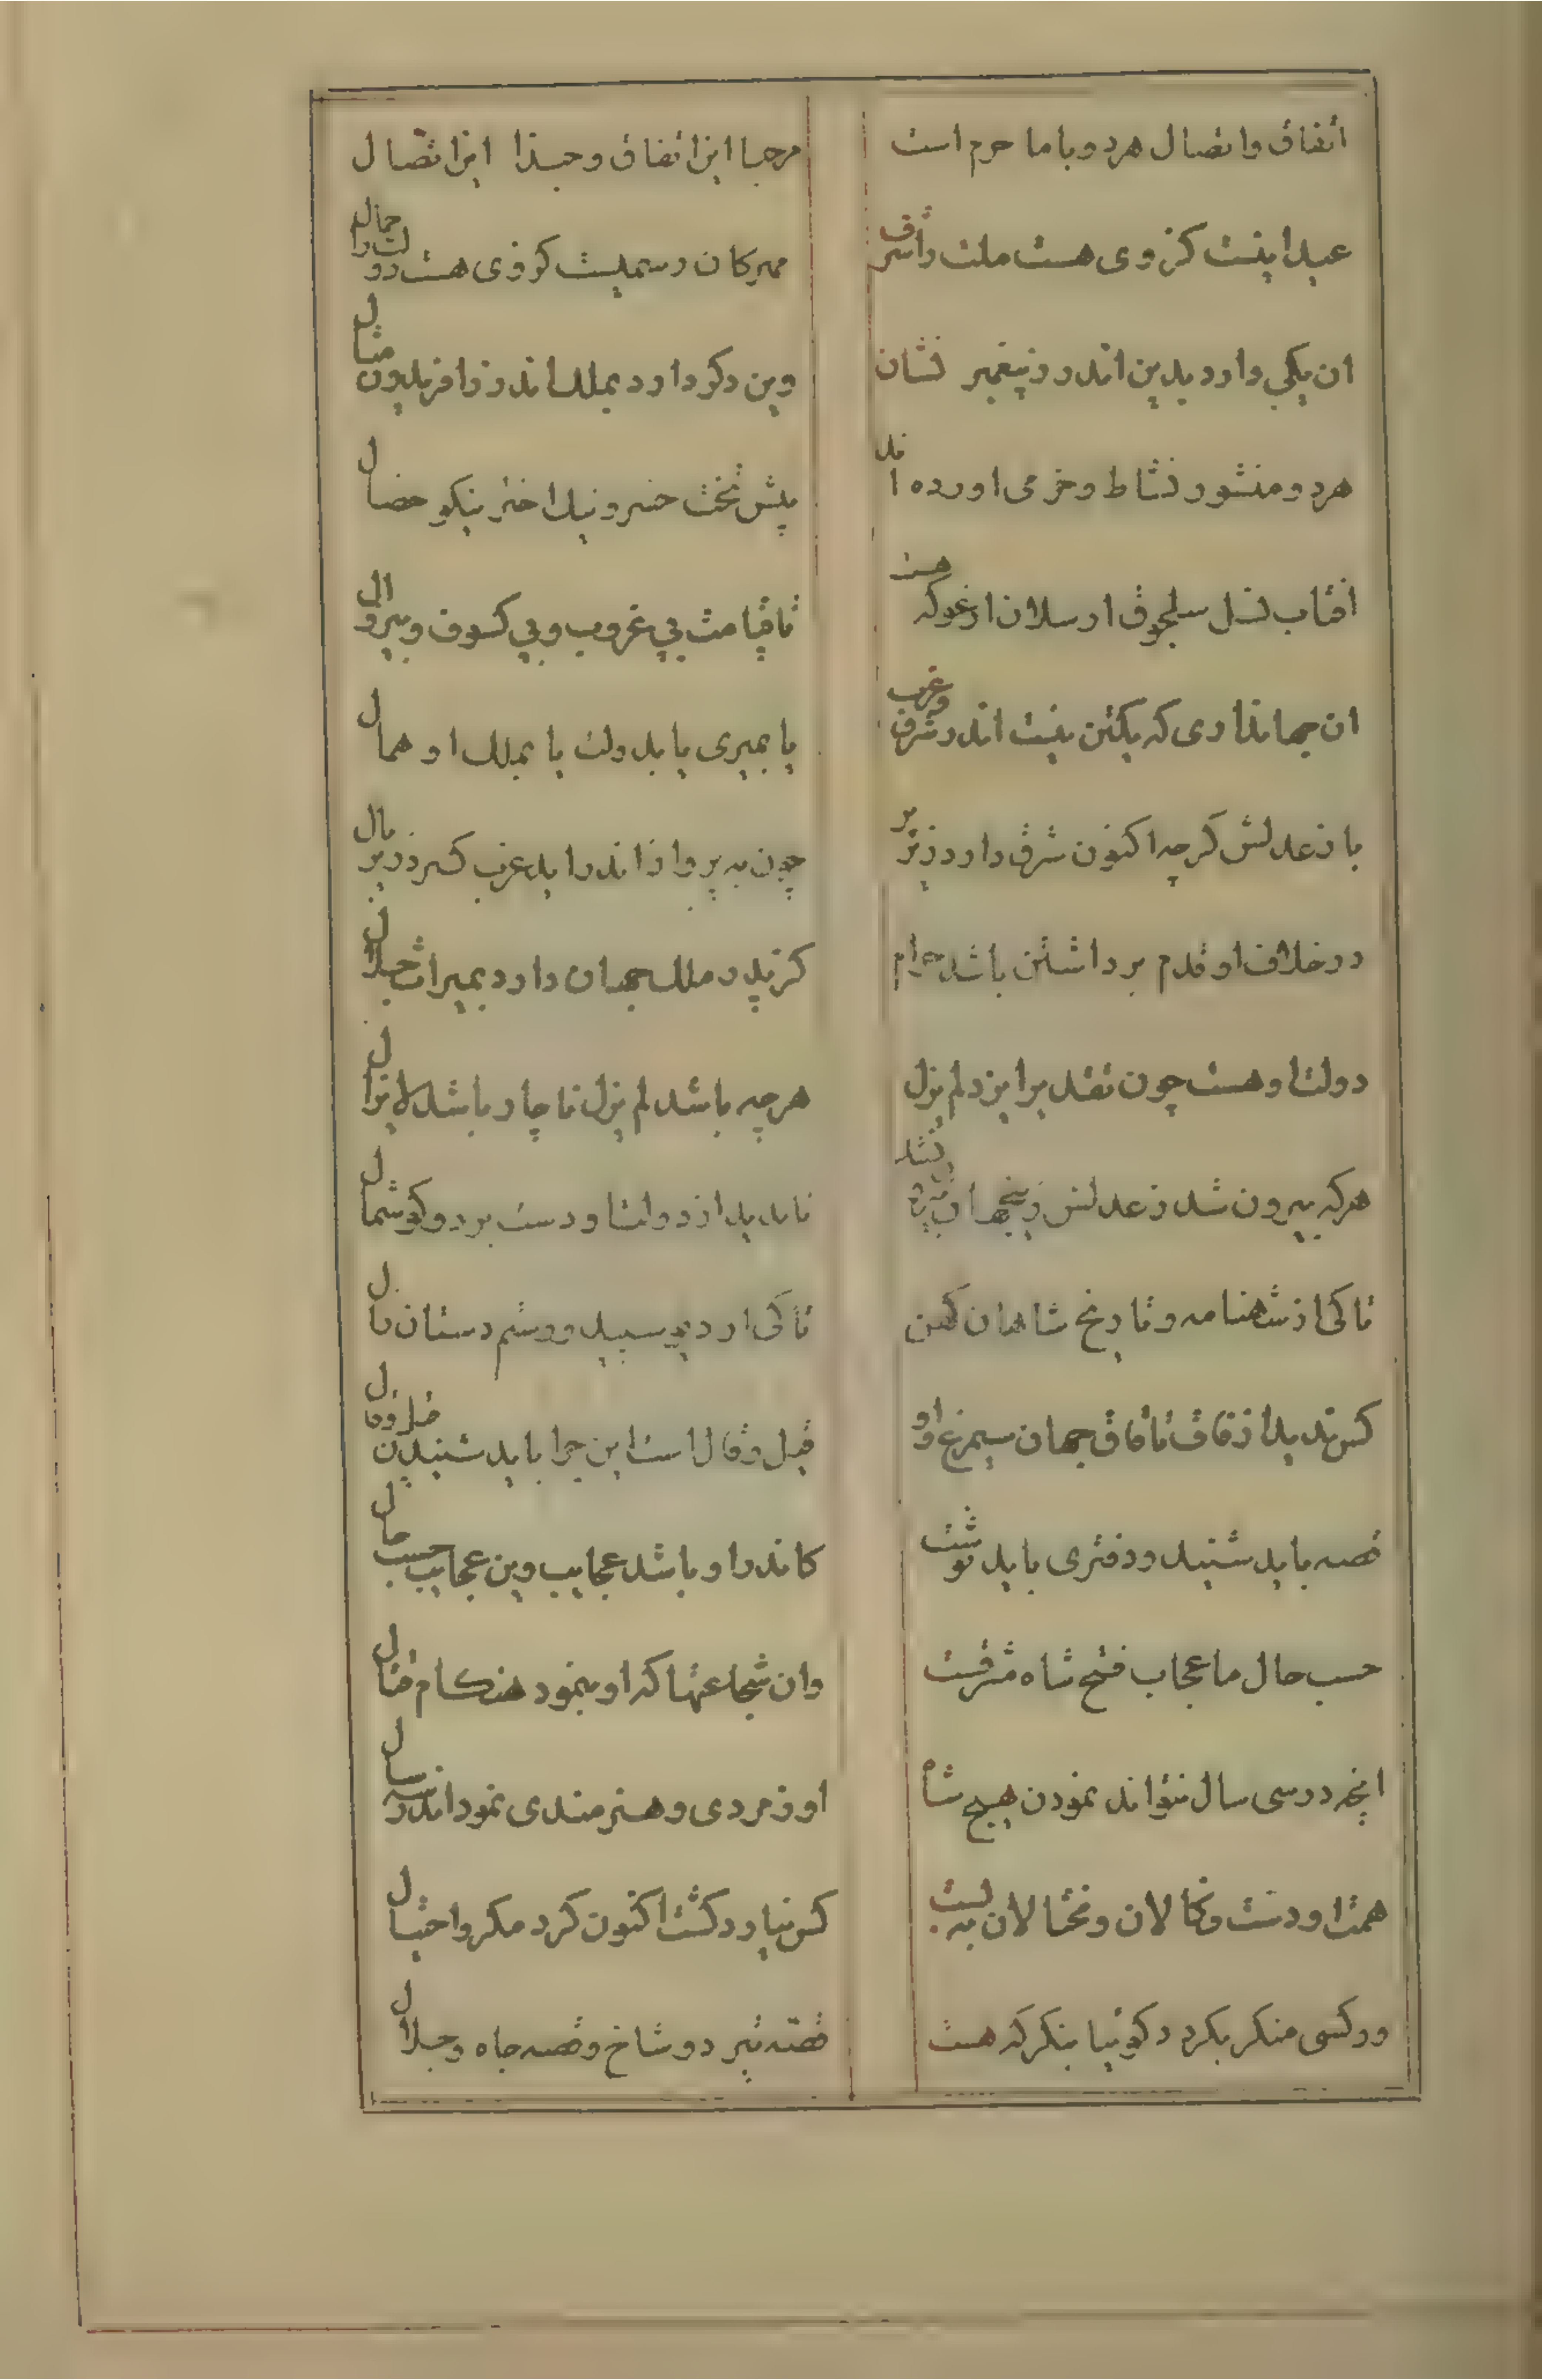 اتفاق واتصال هردو باما حرم است
مرحبا این اتفاق وحبذا این اتصال
عید اینست کز وی هست ملت را شرف
مهرکان رسمیست کز وی هست دولت را جمال
ان یکی دارد بدین اندر ز پیغمبر نشان
وین دکر دارد بملک اندر ز افریدون مثال
هردو منشور نشاط و خرمی اورده اند
پیش تخت خسرو نیک اختر نیکو خصال
افتاب نسل سلجوق ارسلان ارغو که هست
تا قیامت بی غروب و بی کسوف و بی زوال
ان جهانداری که یکتن نیست اندر شرق وغرب
یا بمیری یا بدولت یا بملک او همال
باز عدلش کرچه اکنون شرق دارد زیر پر
چون به پرواز اندر اید غرب کیرد زیر بال
در خلاف او قدم برداشتن باشد حرام
کز پدر ملک جهان دارد بمیراث حلال
دولت او هست چون تقدیر ایزد لم یزل
هرچه باشد لم یزل ناچار باشد لایزال
هرکه بیرون شد ز عدلش
تا بدید از دولت او دست برد و کوشمال
تا کی از شهنامه و تاریخ شاهان کهن
تا کی از دیو سپید و رستم دستان زال
کس ندید از قاف تا قاف جهان سیمرغ او
قیل و قال است این چرا باید شنیدن قیل وقال
قصه باید شنید و دفتری باید نوشت
کاندر او باشد عجایب وین عجایب حسب حال
حسب حال ما عجاب فتح شاه مشرقست
وان شجاعتها که او بنمود هنکام قتال
انچه در سی سال نتواند نمودن هیچ شاه
او ز مردی و هنرمندی نمود اندر سه سال
همت او دست و محتالان به بست
کس نیارد کشت اکنون کرد مکر و احتیال
ور کسی منکر بکردد کو بیا بنکر که هست
قصه تیر دو شاخ و قصه جاه و جلال